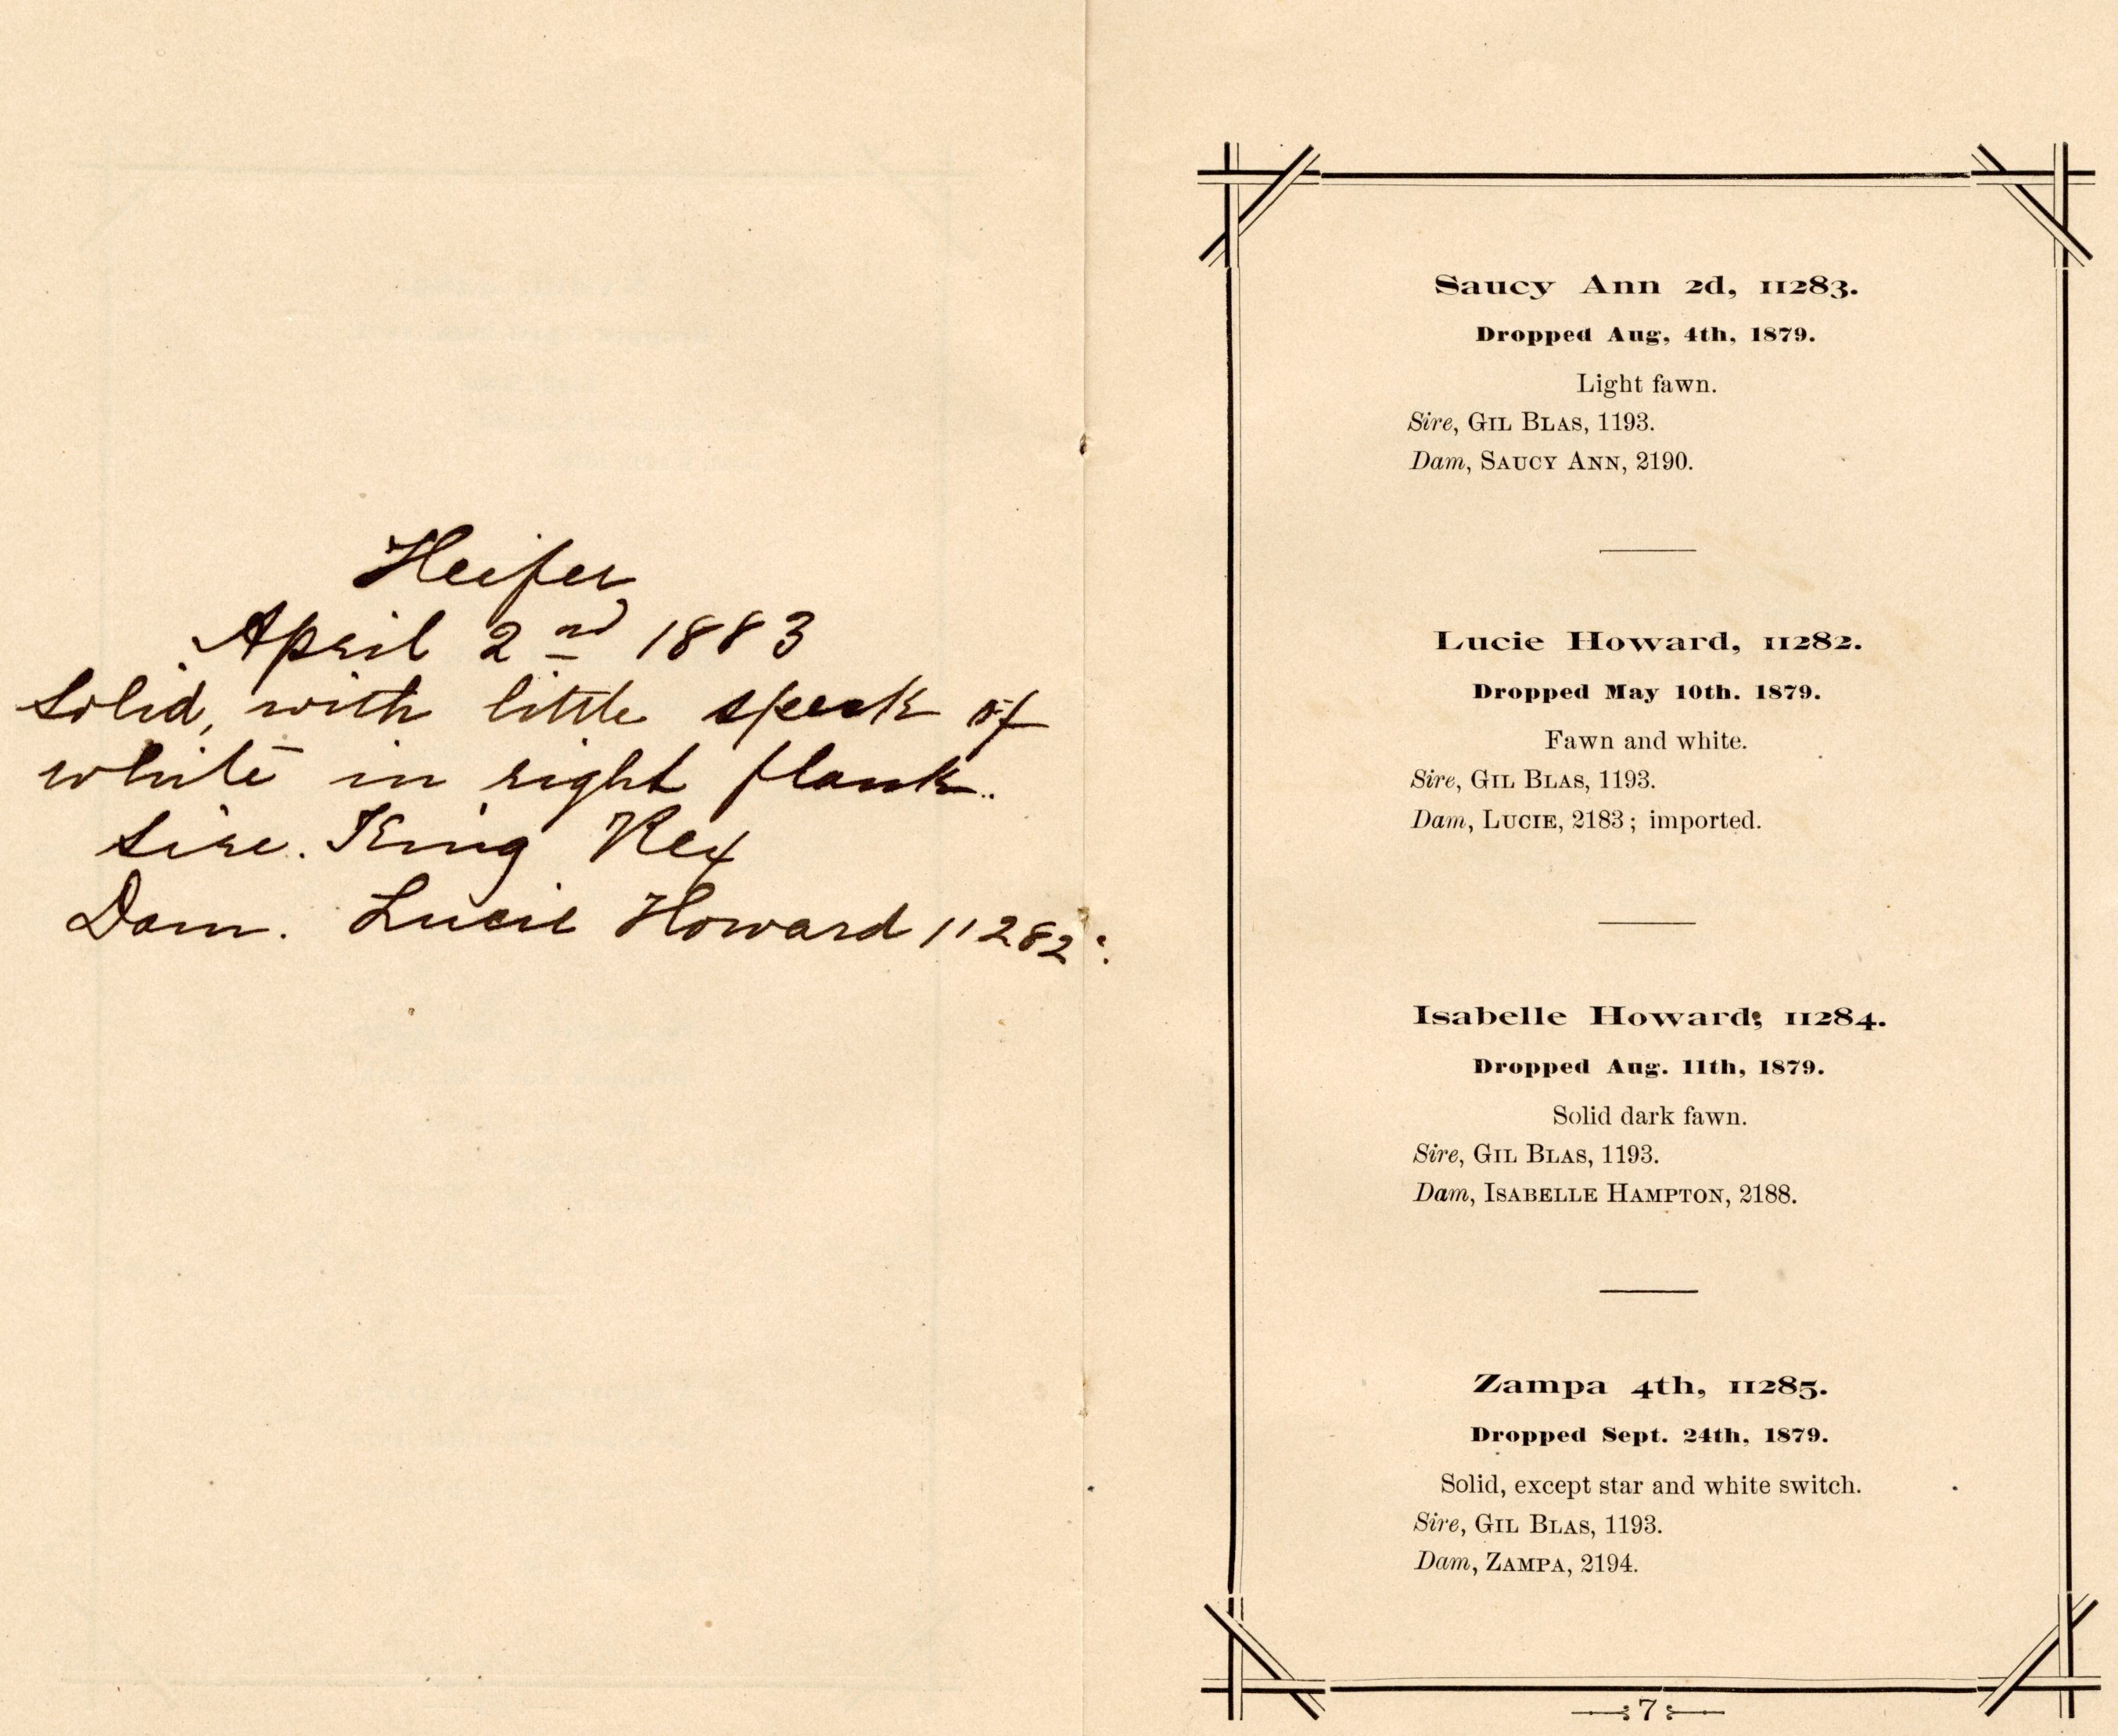 Heifer
April 2nd 1883
Solid, with little speck of
white in right flank.
Sire. King Rex
Dam. Lucie Howard 11282.
Saucy Ann 2d, 11283.
Dropped Aug, 4th, 1879.
Light fawn.
Sire, GIL BLAS, 1193.
Dam, SAUCY ANN, 2190.
Lucie Howard, 11282.
Dropped May 10th. 1879.
Fawn and white.
Sire, GIL BLAS, 1193.
Dam, LUCIE, 2183; imported.
Isabelle Howard; 11284.
Dropped Aug. 11th, 1879.
Solid dark fawn.
Sire, GIL BLAS, 1193.
Dam, ISABELLE HAMPTON, 2188.
Zampa 4th, 11285.
Dropped Sept. 24th, 1879.
Solid, except star and white switch.
Sire, GIL BLAS, 1193.
Dam, ZAMPA, 2194.
7